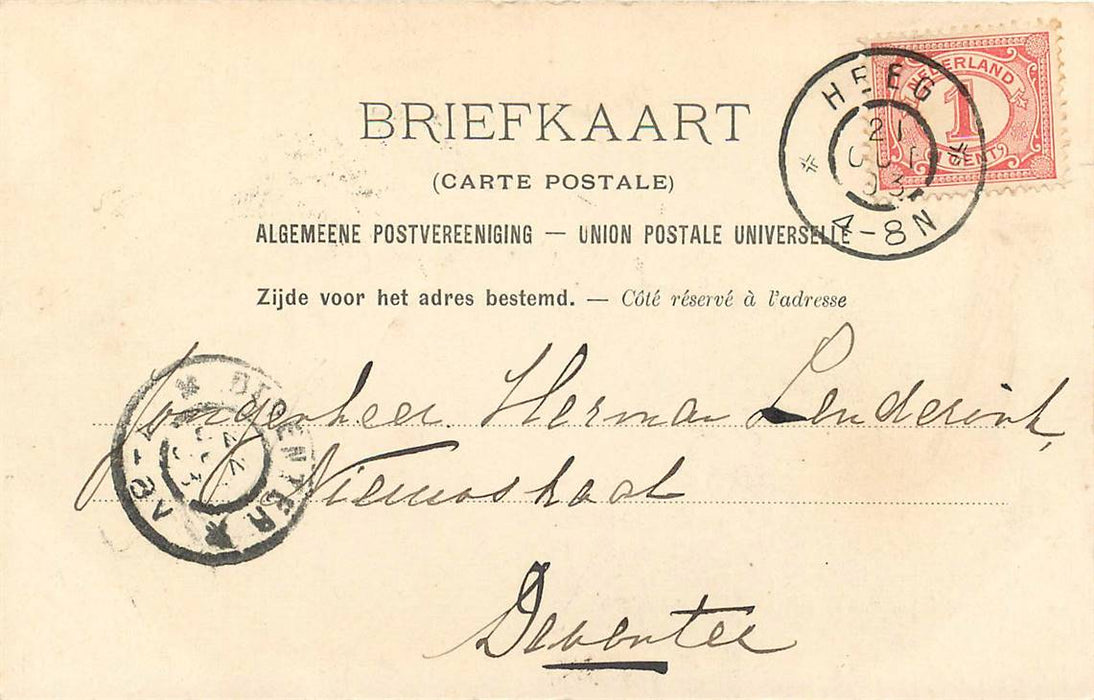 BRIEFKAART
(CARTE POSTALE)
ALGEMEENE POSTVEREENIGING — UNION POSTALE UNIVERSELLE
Zijde voor het adres bestemd. — Côté réservé à l'adresse
NEDERLAND
1
CENT
HEEG
21
OCT
03
4-8N
Jongenheer Herman Lenderink,
Nieuwstraat
Deventer
DEVENTER